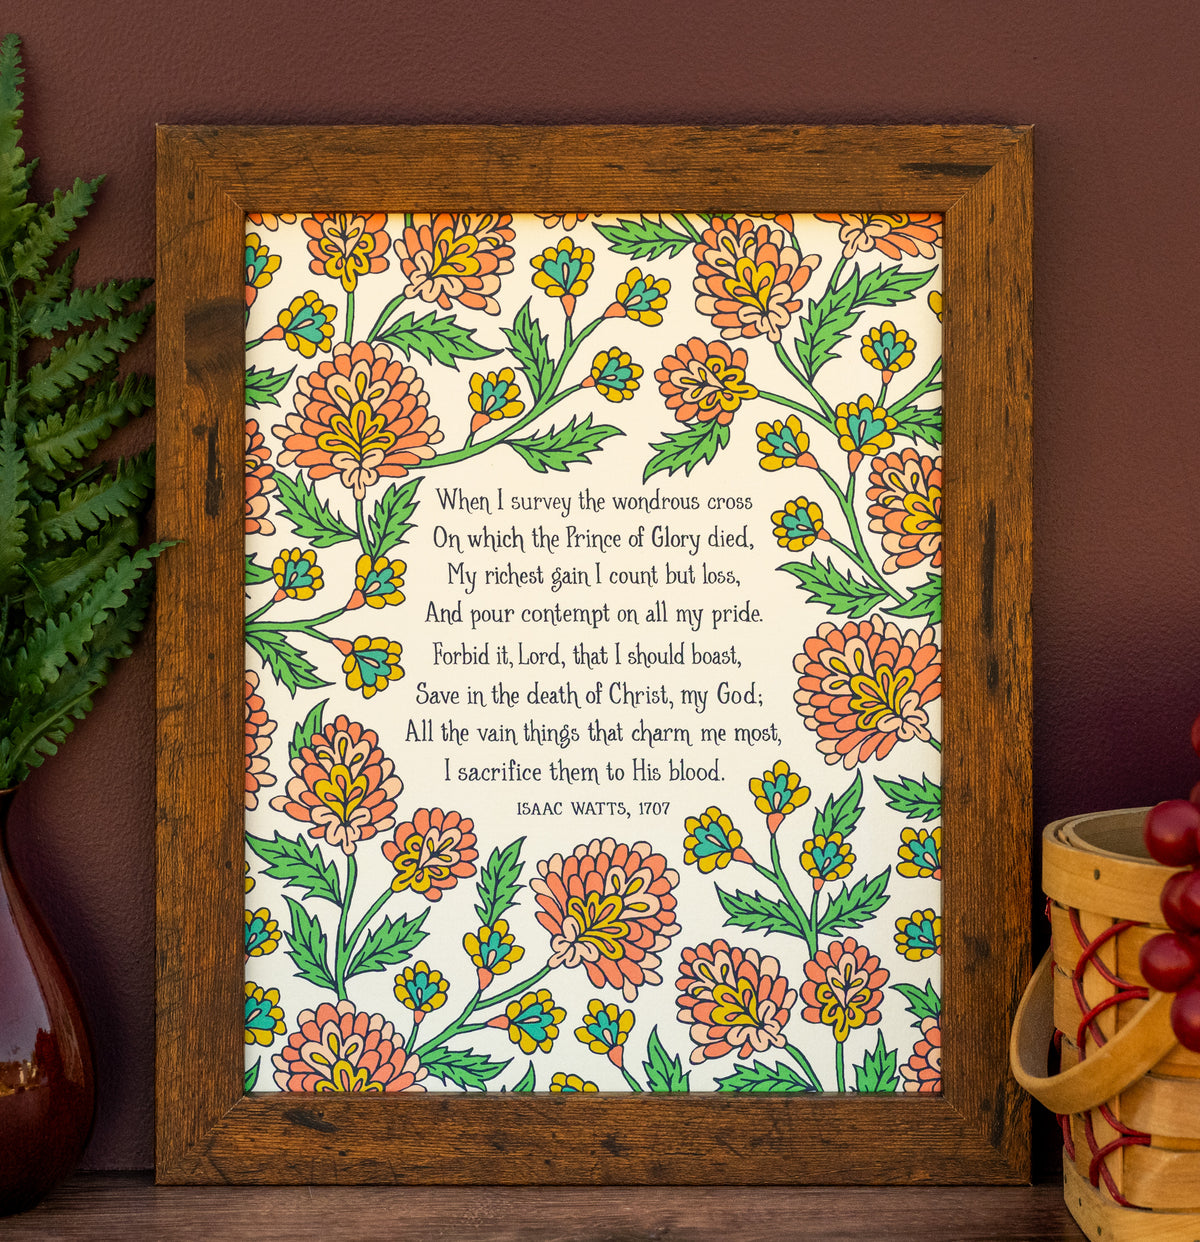 When I survey the wondrous cross
On which the Prince of Glory died,
My richest gain I count but loss,
And pour contempt on all my pride.
Forbid it, Lord, that I should boast,
Save in the death of Christ, my God;
All the vain things that charm me most,
I sacrifice them to His blood.
ISAAC WATTS, 1707